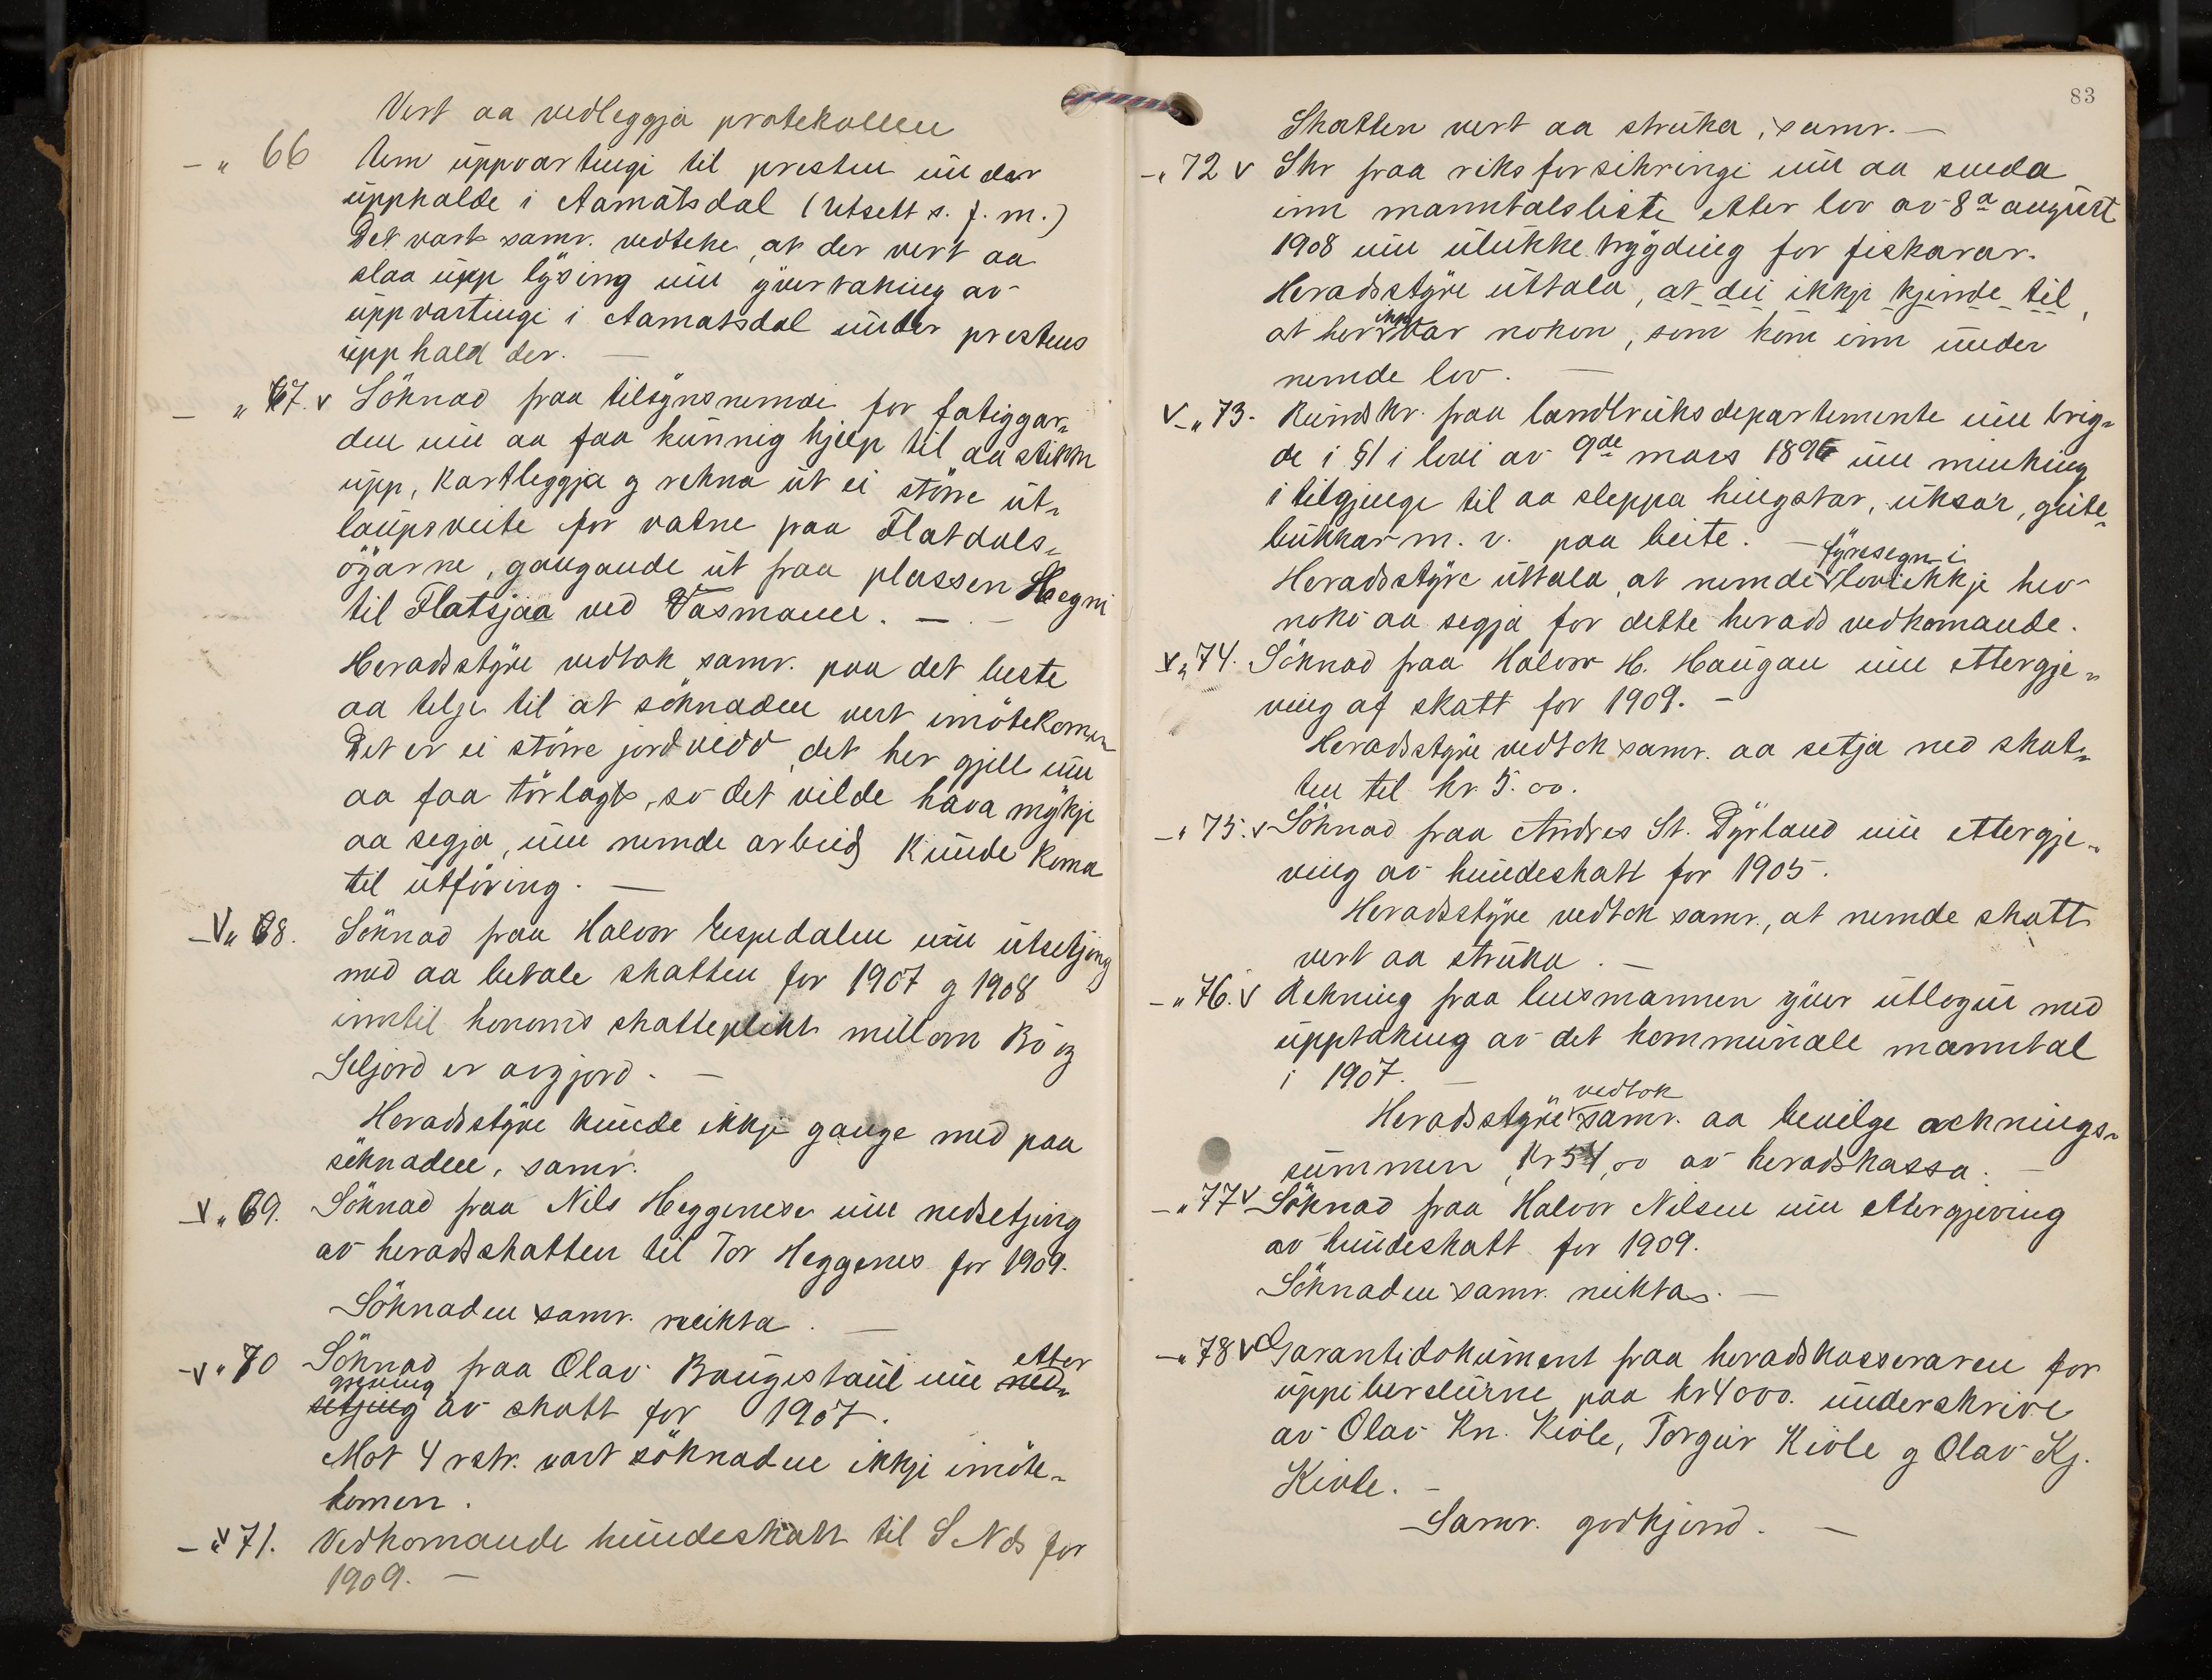 Vert aa vedleggja protekollen
- " 66 Um uppvartingi til presten under
upphalde i Aamotsdal (Utsett s. f. m.)
Det vart samr. vedteke, at der vert aa
slaa upp lysing um yvertaking av
uppvartingi i Aamotsdal under prestens
upphald der. —
- " 67. v Söknad fraa tilsynsnemdi for fatiggar-
den um aa faa kunnig hjelp til aa stikka
upp, kartleggja og rekna ut ei större ut-
laupsveite for vatne paa Flatdals-
öyarne, gangande ut fraa plassen Hegni
til Flatsjaa ved Vasmoane. —
Heradsstyre vedtok samr. paa det beste
aa telja til at söknaden vert imötekomen
Det er ei större jordvidd, det her gjeld um
aa faa törlagt, so det vilde hava mykje
aa segja, um nemde arbeid kunde koma
til utföring. —
- v " 68. Söknad fraa Halvor Espedalen um utsetjing
med aa betale skatten for 1907 og 1908
inntil honoms skatteplikt millom Bö og
Seljord er avgjord. —
Heradsstyre kunde ikkje gange med paa
söknaden, samr.
- v " 69. Söknad fraa Nils Heggenese um nedsetjing
av heradsskatten til Tor Heggenes for 1909.
Söknaden samr. neikta. —
- v " 70 Söknad fraa Olav Baugestaul um etter ned-
gjeving setjing av skatt for 1907.
Mot 4 rstr. vart söknaden ikkje imöte-
komen.
- v " 71. Vedkomande hundeskatt til S. Nds for
1909. —
83
Skatten vert aa struka, samr. —
- " 72 v Skr fraa riksforsikringi um aa senda
inn manntalsliste etter lov av 8a august
1908 um ulukketrygding for fiskarar.
Heradsstyre uttala, at dei ikkje kjende til,
at her ikkje var nokon, som kom inn under
nemde lov. —
v - " 73. Rundskr. fraa landbruksdepartemente um brig-
de i §1 i lovi av 9de mars 1896 um minking
i tilgjenge til aa sleppa hingstar, uksar, geite-
bukkar m. v. paa beite. —
Heradsstyre uttala, at nemde fyresegn i lovi ikkje hev
noko aa segja for dette herads vedkomande.
v " 74. Söknad fraa Halvor H. Haugan um ettergje-
ving af skatt for 1909. -
Heradsstyre vedtok samr. aa setja ned skat-
ten til kr. 5.00.
- " 75. v Söknad fraa Andres St. Dyrland um ettergje-
ving av hundeskatt for 1905.
Heradsstyre vedtok samr., at nemde skatt
vert aa struka. —
- " 76. v Rekning fraa lensmannen yver utlogur med
upptaking av det kommunale manntal
i 1907. —
Heradsstyre vedtok samr. aa bevilge reknings-
summen, Kr 54,00 av heradskassa. —
- " 77 v Söknad fraa Halvor Nilsen um ettergjeving
av hundeskatt for 1909.
Söknaden samr. neiktas. —
- " 78 v Garantidokument fraa heradskasseraren for
uppiberslurne paa kr 4000. underskrive
av Olav Kn. Kivle, Torgur Kivle og Olav Kj.
Kivle. —
Samr. godkjend. —